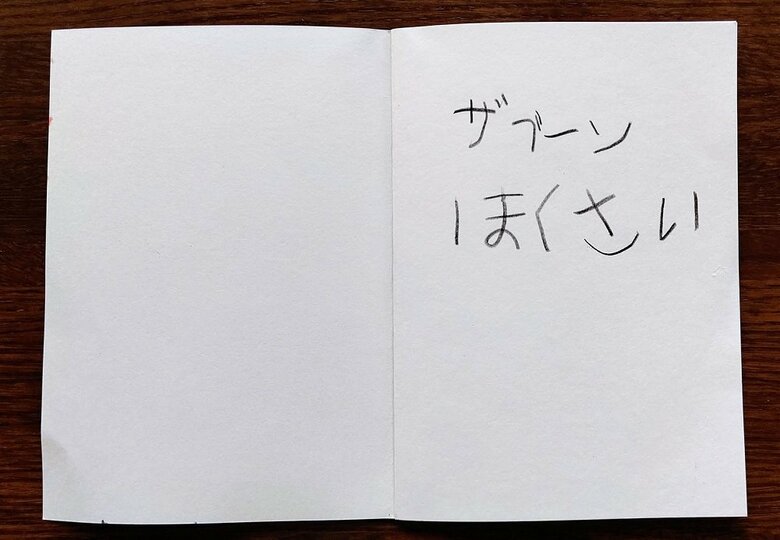 ザブーン
ほくさい